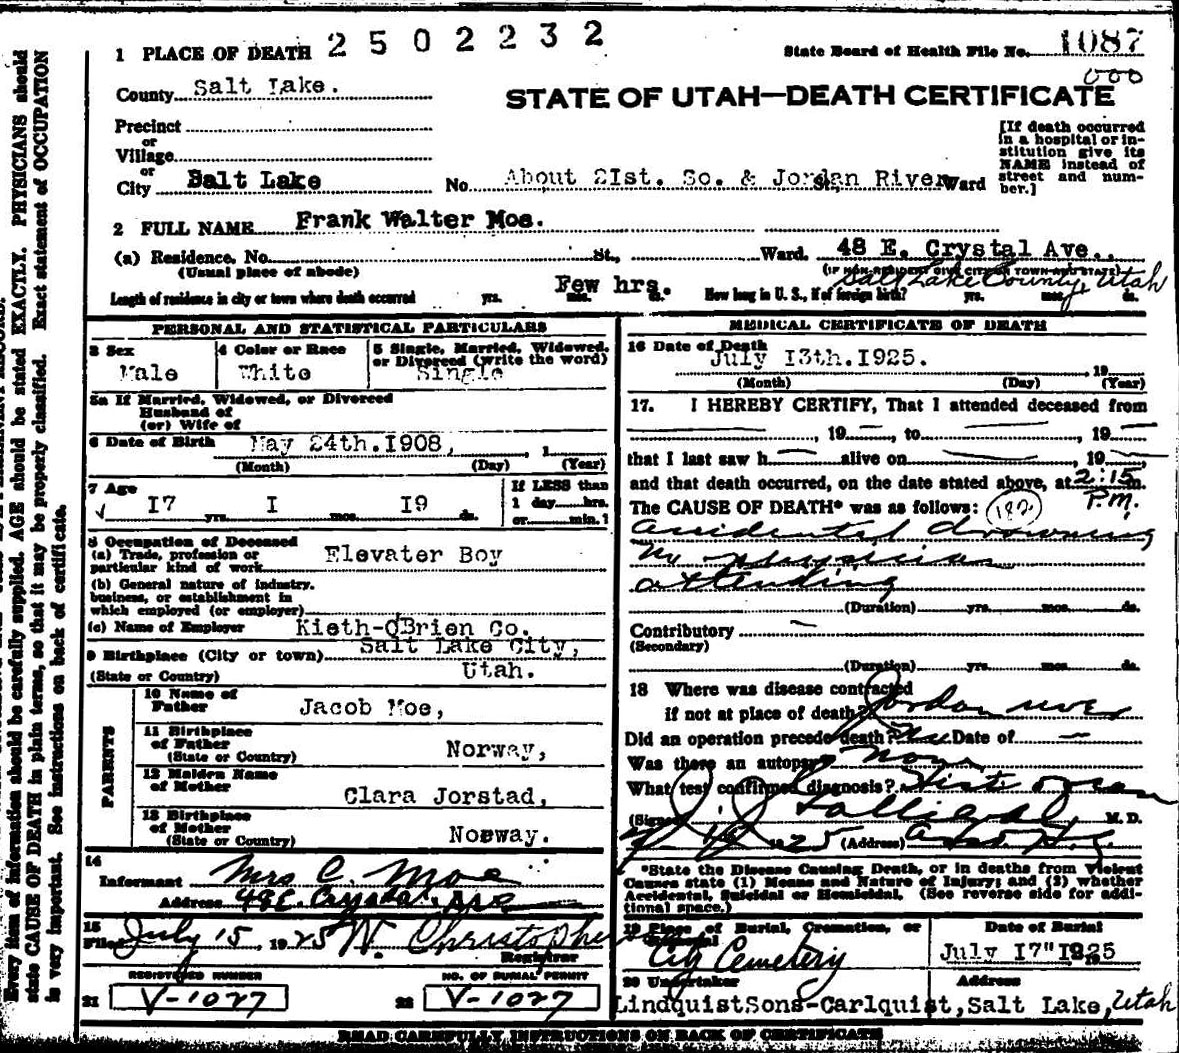 1 PLACE OF DEATH 2502232
State Board of Health File No. 1087
000
County Salt Lake.
STATE OF UTAH—DEATH CERTIFICATE
Precinct
or
Village
or
City Salt Lake No. About 2Ist. So. & Jordan River St., Ward
[If death occurred
in a hospital or in-
stitution give its
NAME instead of
street and num-
ber.]
2 FULL NAME Frank Walter Moe.
(a) Residence, No. St., Ward. 48 E. Crystal Ave.,
(Usual place of abode) (IF NON-RESIDENT GIVE CITY OR TOWN AND STATE)
Salt Lake County, Utah
Length of residence in city or town where death occurred yrs. mos. Few hrs. How long in U. S., if of foreign birth? yrs. mos. ds.
PERSONAL AND STATISTICAL PARTICULARS
3 Sex 4 Color or Race 5 Single, Married, Widowed,
or Divorced (write the word)
Male White Single
5a If Married, Widowed, or Divorced
Husband of
(or) Wife of
6 Date of Birth May 24th.I908, 1
(Month) (Day) (Year)
7 Age If LESS than
I7 yrs. I mos. I9 ds. 1 day hrs.
or min.?
8 Occupation of Deceased
(a) Trade, profession or
particular kind of work Elevater Boy
(b) General nature of industry,
business, or establishment in
which employed (or employer)
(c) Name of Employer Kieth-OBrien Co.
9 Birthplace (City or town) Salt Lake City,
(State or Country) Utah.
PARENTS
10 Name of
Father Jacob Moe,
11 Birthplace
of Father
(State or Country) Norway,
12 Maiden Name
of Mother Clara Jorstad,
13 Birthplace
of Mother
(State or Country) Norway.
14
Informant Mrs C. Moe
Address 48 E. Ave
15
Filed July 15, 1925 W. Christopher
Registrar
REGISTERED NUMBER NO. OF BURIAL PERMIT
21 V-1027 22 V-1027
MEDICAL CERTIFICATE OF DEATH
16 Date of Death
July I3th.I925. , 19
(Month) (Day) (Year)
17. I HEREBY CERTIFY, That I attended deceased from
, 19 — , to — , 19 —
that I last saw h — alive on — , 19 —
and that death occurred, on the date stated above, at 2:15 m.
P.M.
The CAUSE OF DEATH* was as follows: 182
accidental drowning
no physician
attending
(Duration) yrs. mos. ds.
Contributory —
(Secondary)
(Duration) yrs. mos. ds.
18 Where was disease contracted
if not at place of death? Jordan river
Did an operation precede death? No Date of —
Was there an autopsy None
What test confirmed diagnosis?
(Signed) M. D.
1925 (Address)
*State the Disease Causing Death, or in deaths from Violent
Causes state (1) Means and Nature of Injury; and (2) whether
Accidental, Suicidal or Homicidal. (See reverse side for addi-
tional space.)
19 Place of Burial, Cremation, or
Removal
City Cemetery
Date of Burial
July I7" I925
20 Undertaker Address
LindquistSons-Carlquist, Salt Lake, Utah
READ CAREFULLY INSTRUCTIONS ON BACK OF CERTIFICATE
Every item of information should be carefully supplied. AGE should be stated EXACTLY. PHYSICIANS should
state CAUSE OF DEATH in plain terms, so that it may be properly classified. Exact statement of OCCUPATION
is very important. See instructions on back of certificate.